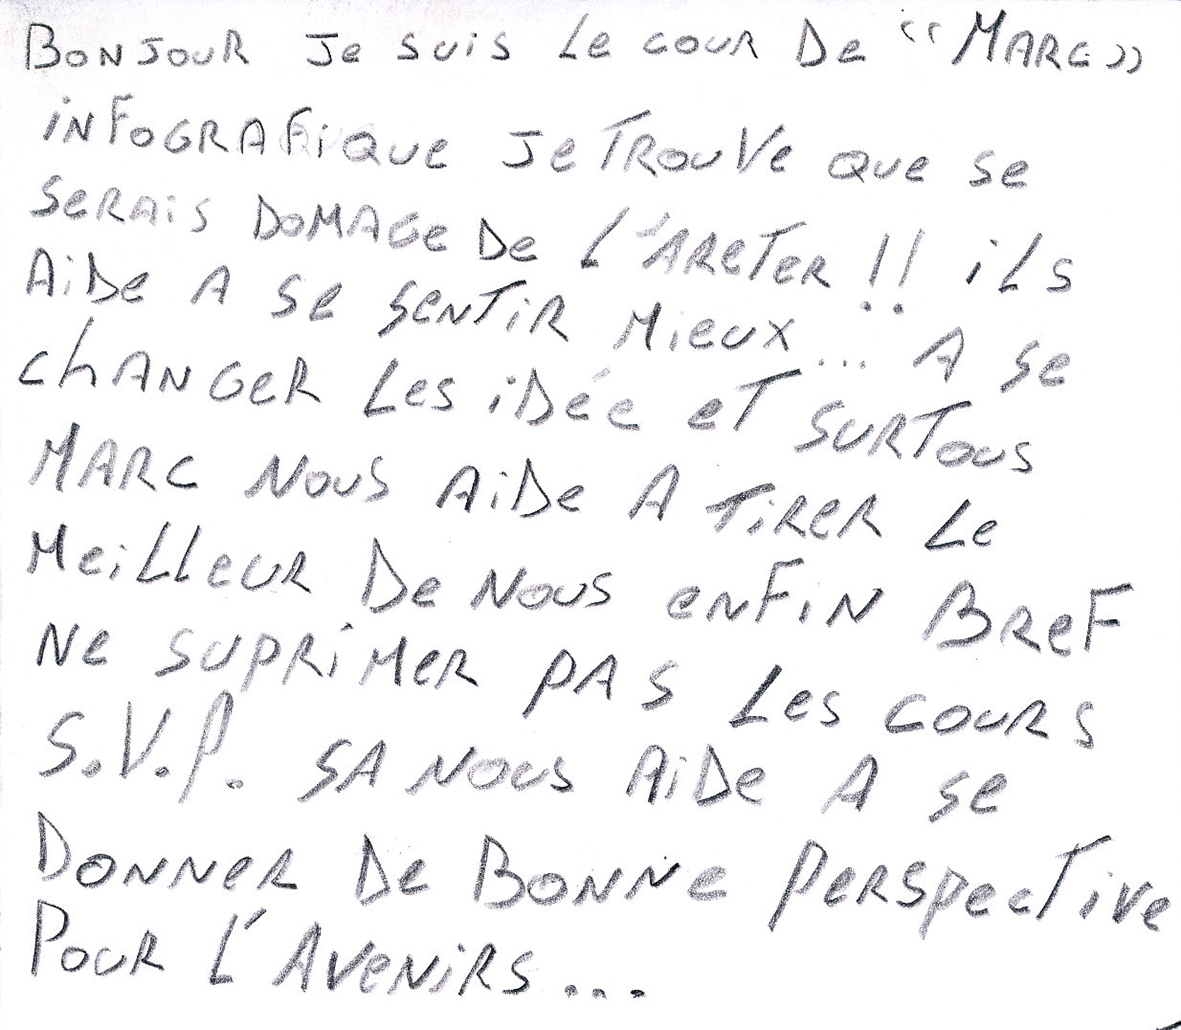 BONJOUR Je suis Le couR De “MARC”
iNFOGRAfiQue Je TROUVe que se
seRAis DOMAGe De L'AReTeR !! iLs
AiDe A se seNTiR Mieux... A se
chANGeR Les iDée eT suRTous
MARC Nous AiDe A TiReR Le
MeiLLeuR De Nous eNFiN BReF
Ne supRiMeR pAs Les couRs
S.V.P. sA Nous AiDe A se
DoNNeR De BoNNe peRspecTive
PouR L'AveNiRs...